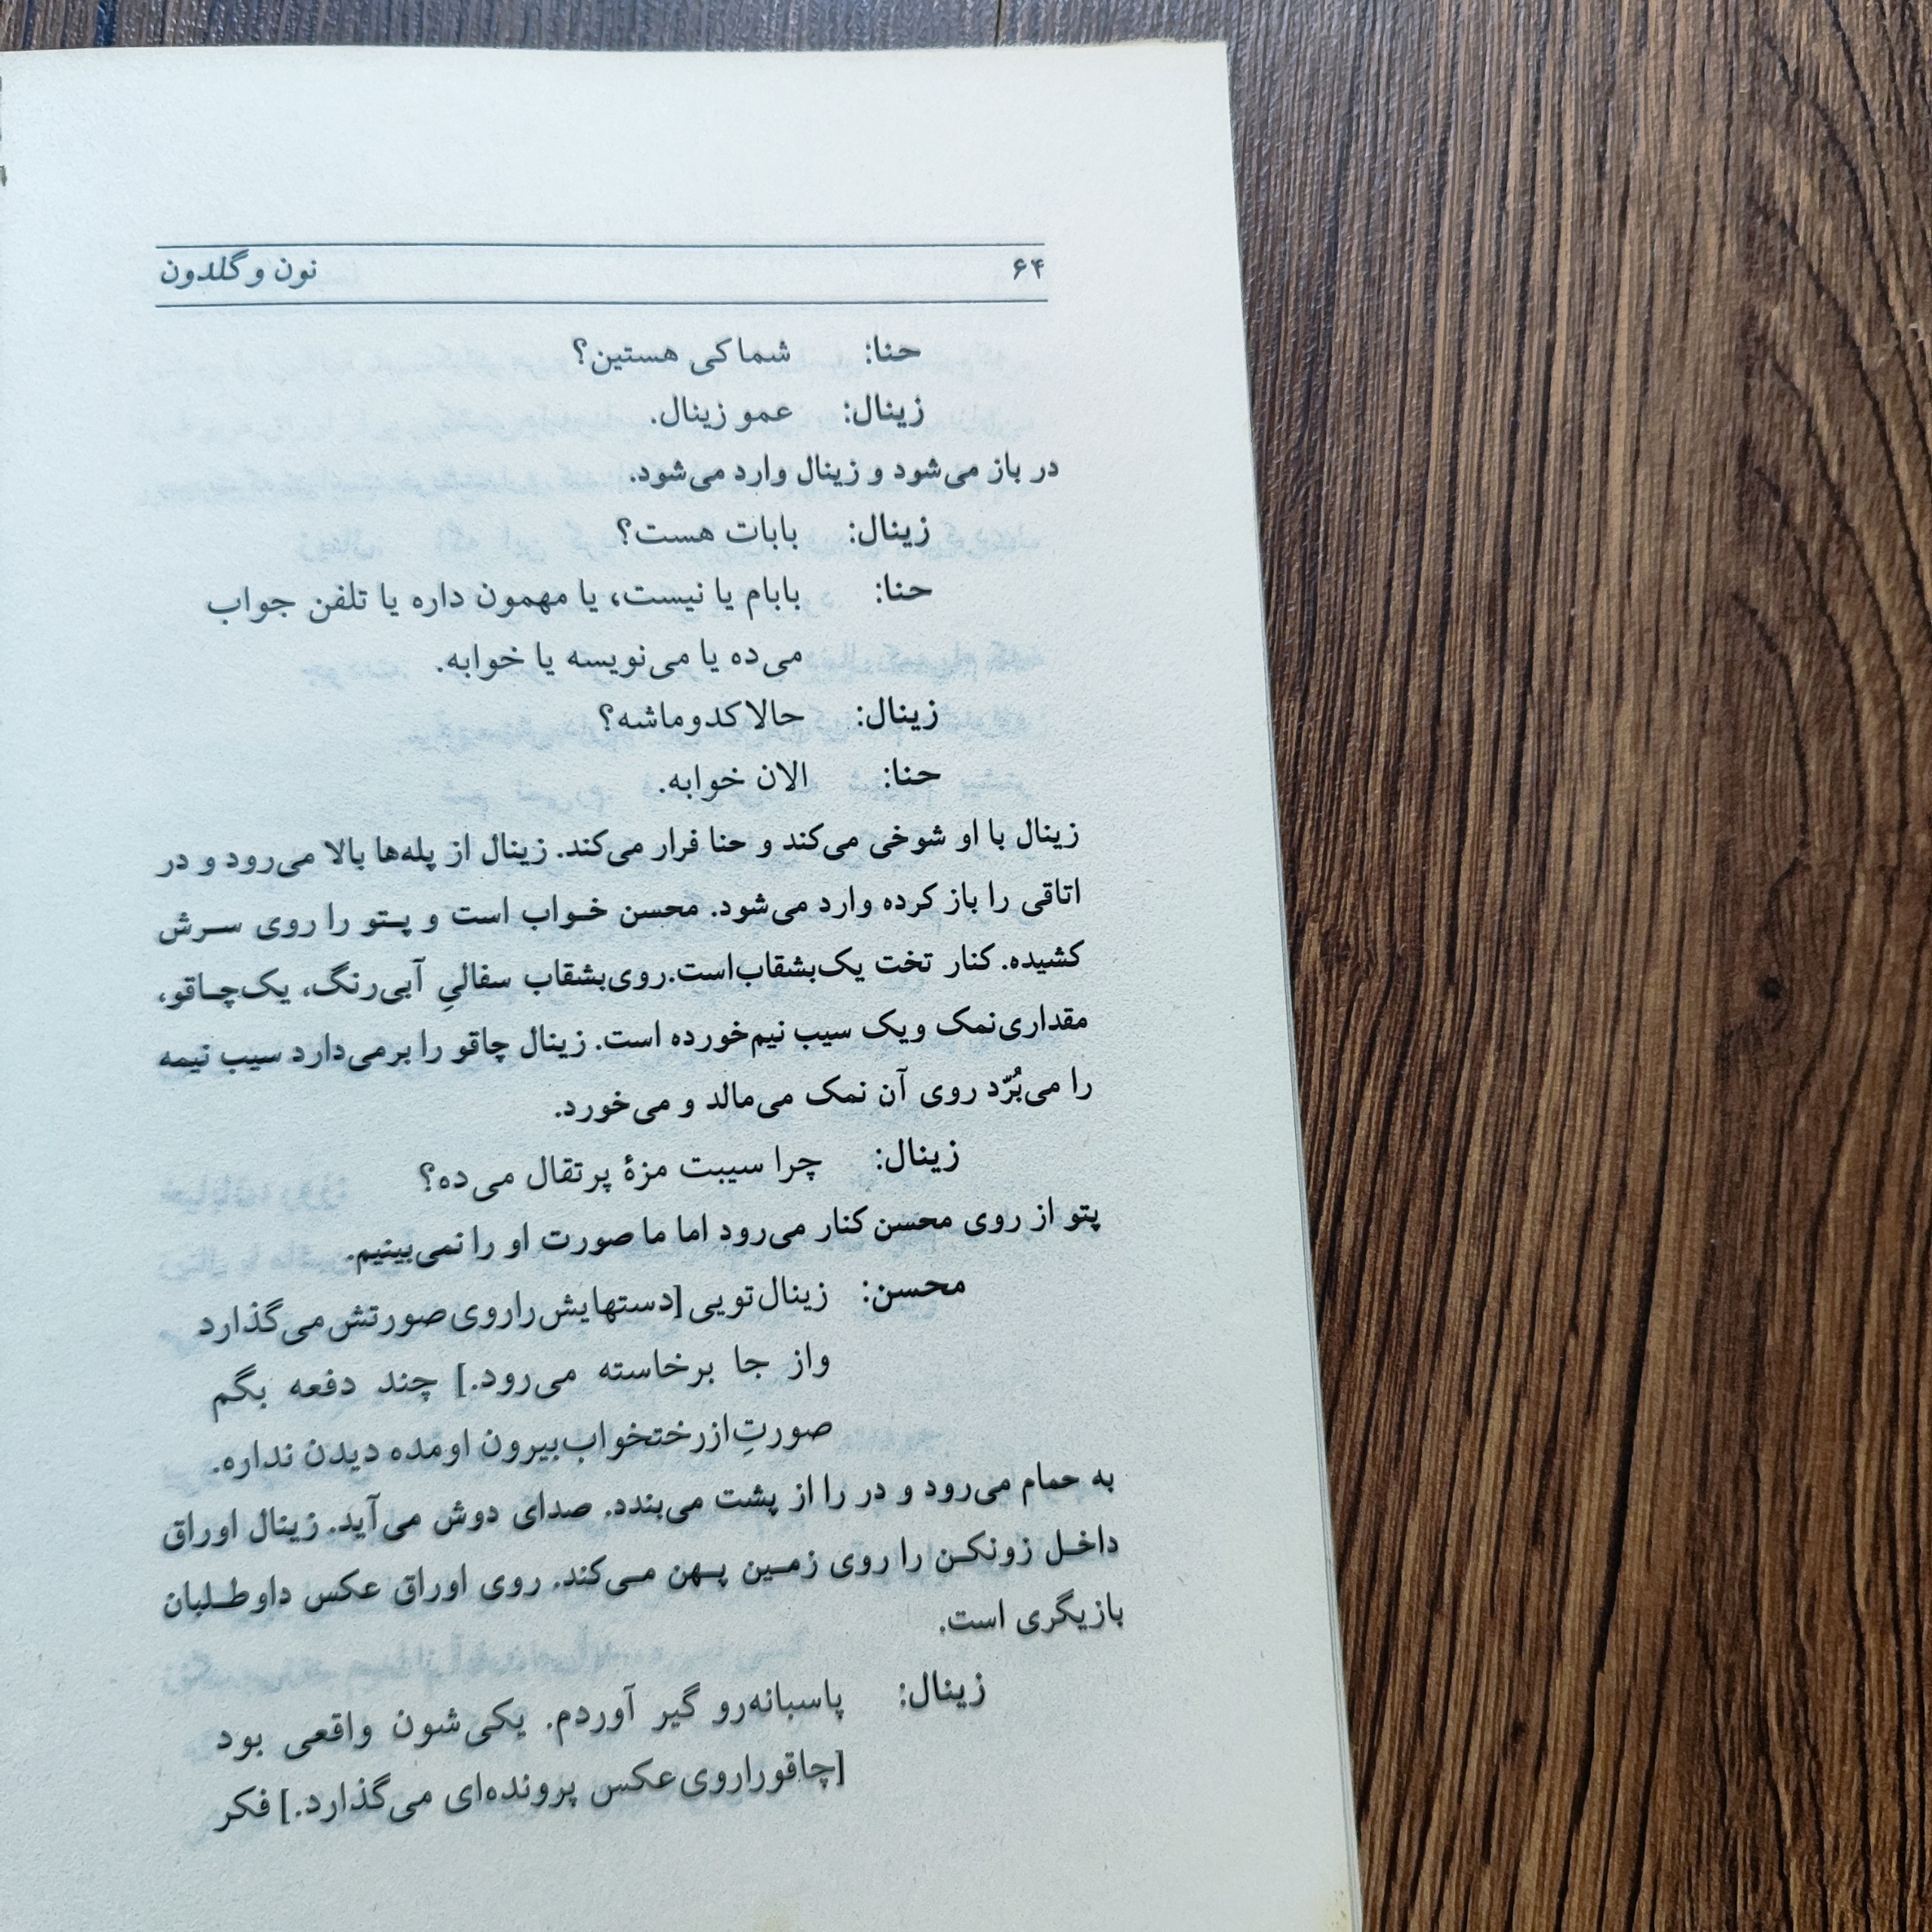 ۶۴ نون و گلدون
حنا: شما کی هستین؟
زینال: عمو زینال.
در باز می‌شود و زینال وارد می‌شود.
زینال: بابات هست؟
حنا: بابام یا نیست، یا مهمون داره یا تلفن جواب
می‌ده یا می‌نویسه یا خوابه.
زینال: حالا کدوماشه؟
حنا: الان خوابه.
زینال با او شوخی می‌کند و حنا فرار می‌کند. زینال از پله‌ها بالا می‌رود و در
اتاقی را باز کرده وارد می‌شود. محسن خواب است و پتو را روی سرش
کشیده. کنار تخت یک‌بشقاب‌است.روی‌بشقاب سفالیِ آبی‌رنگ، یک‌چاقو،
مقداری‌نمک و یک سیب نیم‌خورده است. زینال چاقو را برمی‌دارد سیب نیمه
را می‌بُرّد روی آن نمک می‌مالد و می‌خورد.
زینال: چرا سیبت مزهٔ پرتقال می‌ده؟
پتو از روی محسن کنار می‌رود اما ما صورت او را نمی‌بینیم.
محسن: زینال‌تویی [دستهایش‌راروی‌صورتش‌می‌گذارد
واز جا برخاسته می‌رود.] چند دفعه بگم
صورتِ‌ازرختخواب‌بیرون اومده دیدن نداره.
به حمام می‌رود و در را از پشت می‌بندد. صدای دوش می‌آید. زینال اوراق
داخل زونکن را روی زمین پهن می‌کند. روی اوراق عکس داوطلبان
بازیگری است.
زینال: پاسبانه‌رو گیر آوردم. یکی‌شون واقعی بود
[چاقوراروی‌عکس پرونده‌ای می‌گذارد.] فکر